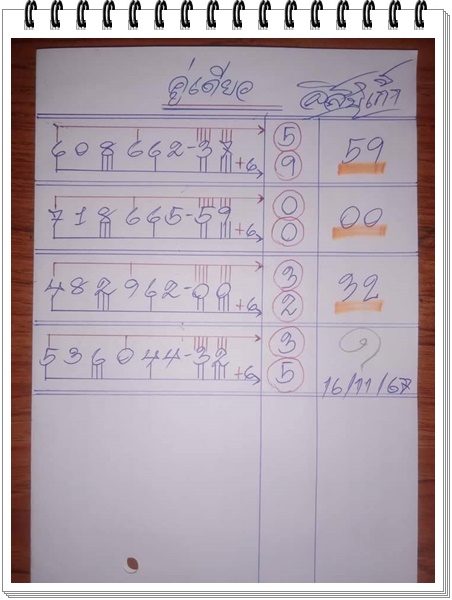 คู่เดียว
608662-37 +6 5 9 59
718665-59 +6 0 0 00
482962-00 +6 3 2 32
536044-32 +6 3 5 ?
16/11/67